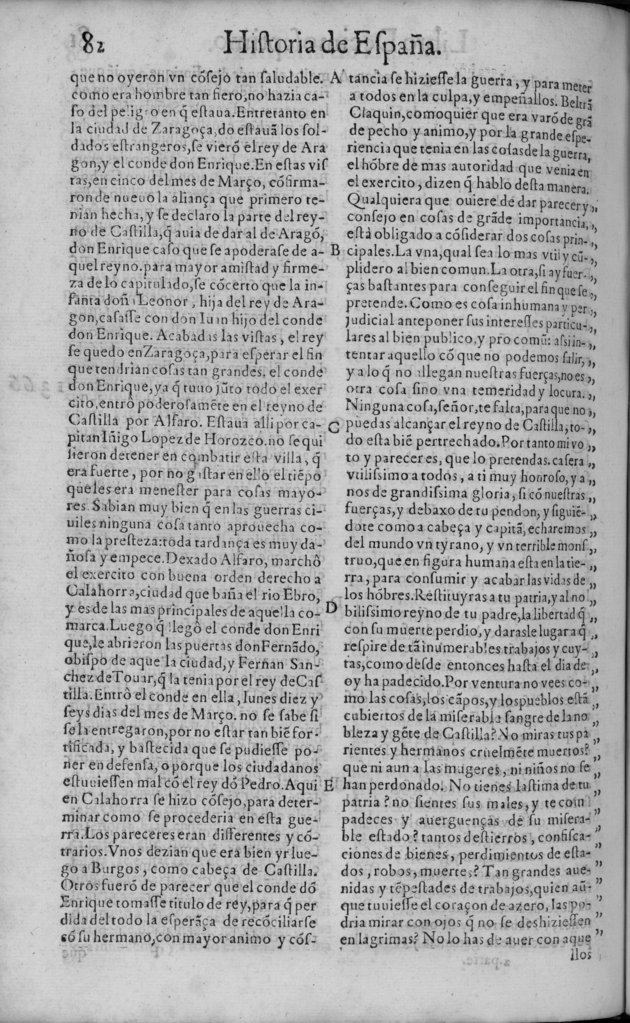 82 Historia de España.
que no oyeron vn cósejo tan saludable.
como era hombre tan fiero, no hazia ca-
so del peligro en q̃ estaua. Entretanto en
la ciudad de Zaragoça, do estauã los sol-
dados estrangeros, se vieró el rey de Ara
gon, y el conde don Enrique. En estas vis
tas, en cinco del mes de Março, cófirma-
ron de nueuo la aliança que primero te-
nian hecha, y se declaro la parte del rey-
no de Castilla, q̃ auia de dar al de Aragó,
don Enrique caso que se apoderase de a-
quel reyno. para mayor amistad y firme-
za de lo capitulado, se cócerto que la in-
fanta doña Leonor, hija del rey de Ara-
gon, casasse con don Iuan hijo del conde
don Enrique. Acabadas las vistas, el rey
se quedo en Zaragoça, para esperar el fin
que tendrian cosas tan grandes. el conde
don Enrique, ya q̃ tuuo júto todo el exer
cito, entró poderosaméte en el reyno de
Castilla por Alfaro. Estaua alli por ca-
pitan Iñigo Lopez de Horozco. no se qui
sieron detener en combatir esta villa, q̃
era fuerte, por no gastar en ello el tiépo
que les era menester para cosas mayo-
res. Sabian muy bien q̃ en las guerras ci-
uiles ninguna cosa tanto aprouecha co-
mo la presteza: toda tardança es muy da-
ñosa y empece. Dexado Alfaro, marchó
el exercito con buena orden derecho a
Calahorra, ciudad que baña el rio Ebro,
y es de las mas principales de aquella co-
marca. Luego q̃ llegó el conde don Enri
que, le abrieron las puertas don Fernãdo,
obispo de aquella ciudad, y Fernan San-
chez de Touar, q̃ la tenia por el rey de Cas
tilla. Entró el conde en ella, lunes diez y
seys dias del mes de Março. no se sabe si
se la entregaron, por no estar tan bié for-
tificada, y bastecida que se pudiesse po-
ner en defensa, o porque los ciudadanos
estuuiessen mal có el rey dó Pedro. Aqui
en Calahorra se hizo cósejo, para deter-
minar como se procederia en esta gue-
rra. Los pareceres eran differentes y có-
trarios. Vnos dezian que era bien yr lue-
go a Burgos, como cabeça de Castilla.
Otros fueró de parecer que el conde dó
Enrique tomasse titulo de rey, para q̃ per
dida del todo la esperãça de recóciliarse
có su hermano, con mayor animo y cós-
A
B
C
D
E
tancia se hiziesse la guerra, y para meter
a todos en la culpa, y empeñallos. Beltrã
Claquin, comoquier que era varó de grã
de pecho y animo, y por la grande espe-
riencia que tenia en las cosas de la guerra,
el hóbre de mas autoridad que venia en
el exercito, dizen q̃ hablo desta manera.
Qualquiera que ouiere de dar parecer y „
consejo en cosas de grãde importancia, „
està obligado a cósiderar dos cosas prin- „
cipales. La vna, qual sea lo mas vtil y cũ- „
plidero al bien comun. La otra, si ay fuer- „
ças bastantes para conseguir el fin que se „
pretende. Como es cosa inhumana y per „
judicial anteponer sus interesses particu- „
lares al bien publico, y pro comũ: assi in- „
tentar aquello có que no podemos salir, „
y a lo q̃ no allegan nuestras fuerças, no es „
otra cosa sino vna temeridad y locura. „
Ninguna cosa, señor, te falta, para que no „
puedas alcançar el reyno de Castilla, to- „
do està bié pertrechado. Por tanto mi vo „
to y parecer es, que lo pretendas. ca sera „
vtilissimo a todos, a ti muy honroso, y a „
nos de grandissima gloria, si có nuestras „
fuerças, y debaxo de tu pendon, y siguié- „
dote como a cabeça y capitã, echaremos „
del mundo vn tyrano, y vn terrible mons „
truo, que en figura humana esta en la tie- „
rra, para consumir y acabar las vidas de „
los hóbres. Restituyras a tu patria, y al no „
bilissimo reyno de tu padre, la libertad q̃ „
con su muerte perdio, y darasle lugar a q̃ „
respire de tã inumerables trabajos y cuy- „
tas, como desde entonces hasta el dia de „
oy ha padecido. Por ventura no vees co- „
mo las cosas, los cãpos, y los pueblos està „
cubiertos de la miserable sangre de la no „
bleza y géte de Castilla? No miras tus pa „
rientes y hermanos cruelméte muertos? „
que ni aun a las mugeres, ni niños no se „
han perdonado. No tienes lastima de tu „
patria? no sientes sus males, y te com „
padeces y auerguenças de su misera- „
ble estado? tantos destierros, confisca- „
ciones de bienes, perdimientos de esta- „
dos, robos, muertes? Tan grandes aue- „
nidas y tẽpestades de trabajos, quien aũ- „
que tuuiesse el coraçon de azero, las po- „
dria mirar con ojos q̃ no se deshiziessen „
en lagrimas? No lo has de auer con aque „
llos